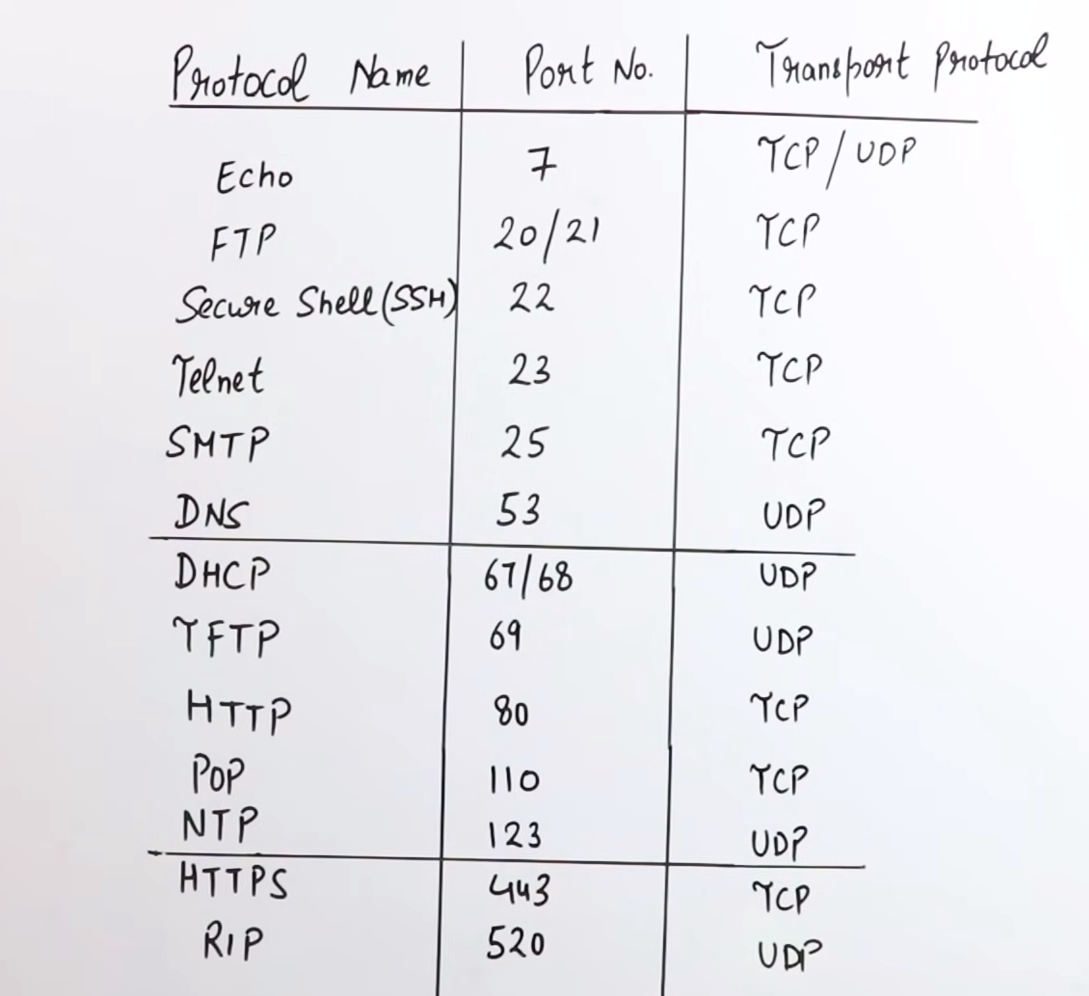 Protocol Name | Port No. | Transport Protocol
Echo | 7 | TCP/UDP
FTP | 20/21 | TCP
Secure Shell(SSH) | 22 | TCP
Telnet | 23 | TCP
SMTP | 25 | TCP
DNS | 53 | UDP
DHCP | 67/68 | UDP
TFTP | 69 | UDP
HTTP | 80 | TCP
POP | 110 | TCP
NTP | 123 | UDP
HTTPS | 443 | TCP
RIP | 520 | UDP